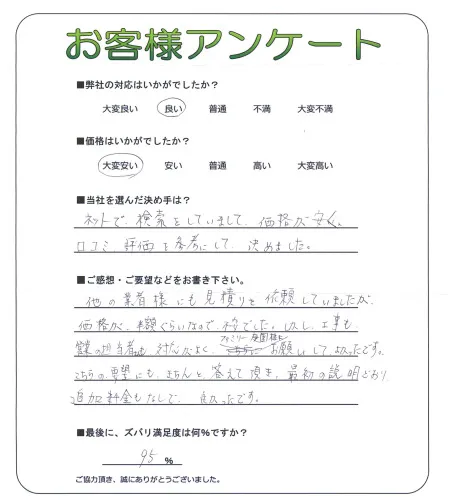 お客様アンケート
■弊社の対応はいかがでしたか？
大変良い 良い 普通 不満 大変不満
■価格はいかがでしたか？
大変安い 安い 普通 高い 大変高い
■当社を選んだ決め手は？
ネットで、検索をしていまして、価格が安く、
口コミ、評価を参考にして、決めました。
■ご感想・ご要望などをお書き下さい。
他の業者様にも見積りを依頼していましたが、
価格が、半額ぐらいなので、不安でした。しかし、工事も
営業の担当者も 対応がよく、 お願いして、よかったです。
こちらの要望にも、きちんと答えて頂き、最初の説明どおり
追加料金もなしで、良かったです。
■最後に、ズバリ満足度は何％ですか？
95 %
ご協力頂き、誠にありがとうございました。